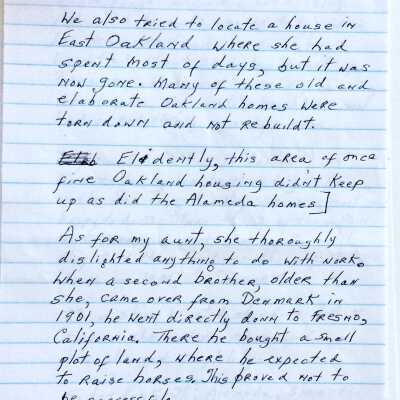 We also tried to locate a house in
East Oakland where she had
spent most of days, but it was
now gone. Many of these old and
elaborate Oakland homes were
torn down and not rebuildt.
Elidently, this area of once
fine Oakland housing didn't keep
up as did the Alameda homes]
As for my aunt, she thoroughly
dislighted anything to do with work.
When a second brother, older than
she, came over from Denmark in
1901, he went directly down to Fresno,
California. There he bought a small
plot of land, where he expected
to raise horses. This proved not to
be